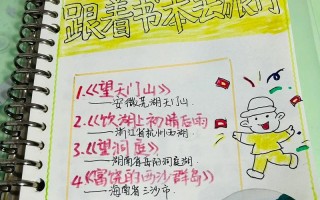 跟着书本去旅行
1.《望天门山》
——安徽芜湖天门山
2.《饮湖上初晴后雨》
——浙江省杭州西湖.
3.《望洞庭》
——湖南省岳阳洞庭湖
4《富饶的西沙群岛》
——海南省三沙市.